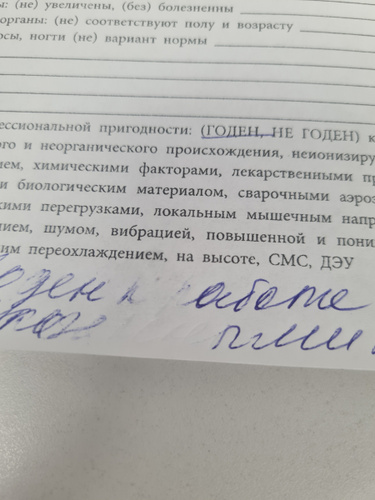 ы: (не) увеличены, (без) болезненны
органы: (не) соответствуют полу и возрасту
осы, ногти (не) вариант нормы
ессиональной пригодности: (ГОДЕН, НЕ ГОДЕН) к
ого и неорганического происхождения, неионизиру
ием, химическими факторами, лекарственными пр
и биологическим материалом, сварочными аэроз
кими перегрузками, локальным мышечным напр
нием, шумом, вибрацией, повышенной и пони
им переохлаждением, на высоте, СМС, ДЭУ
оден к работе